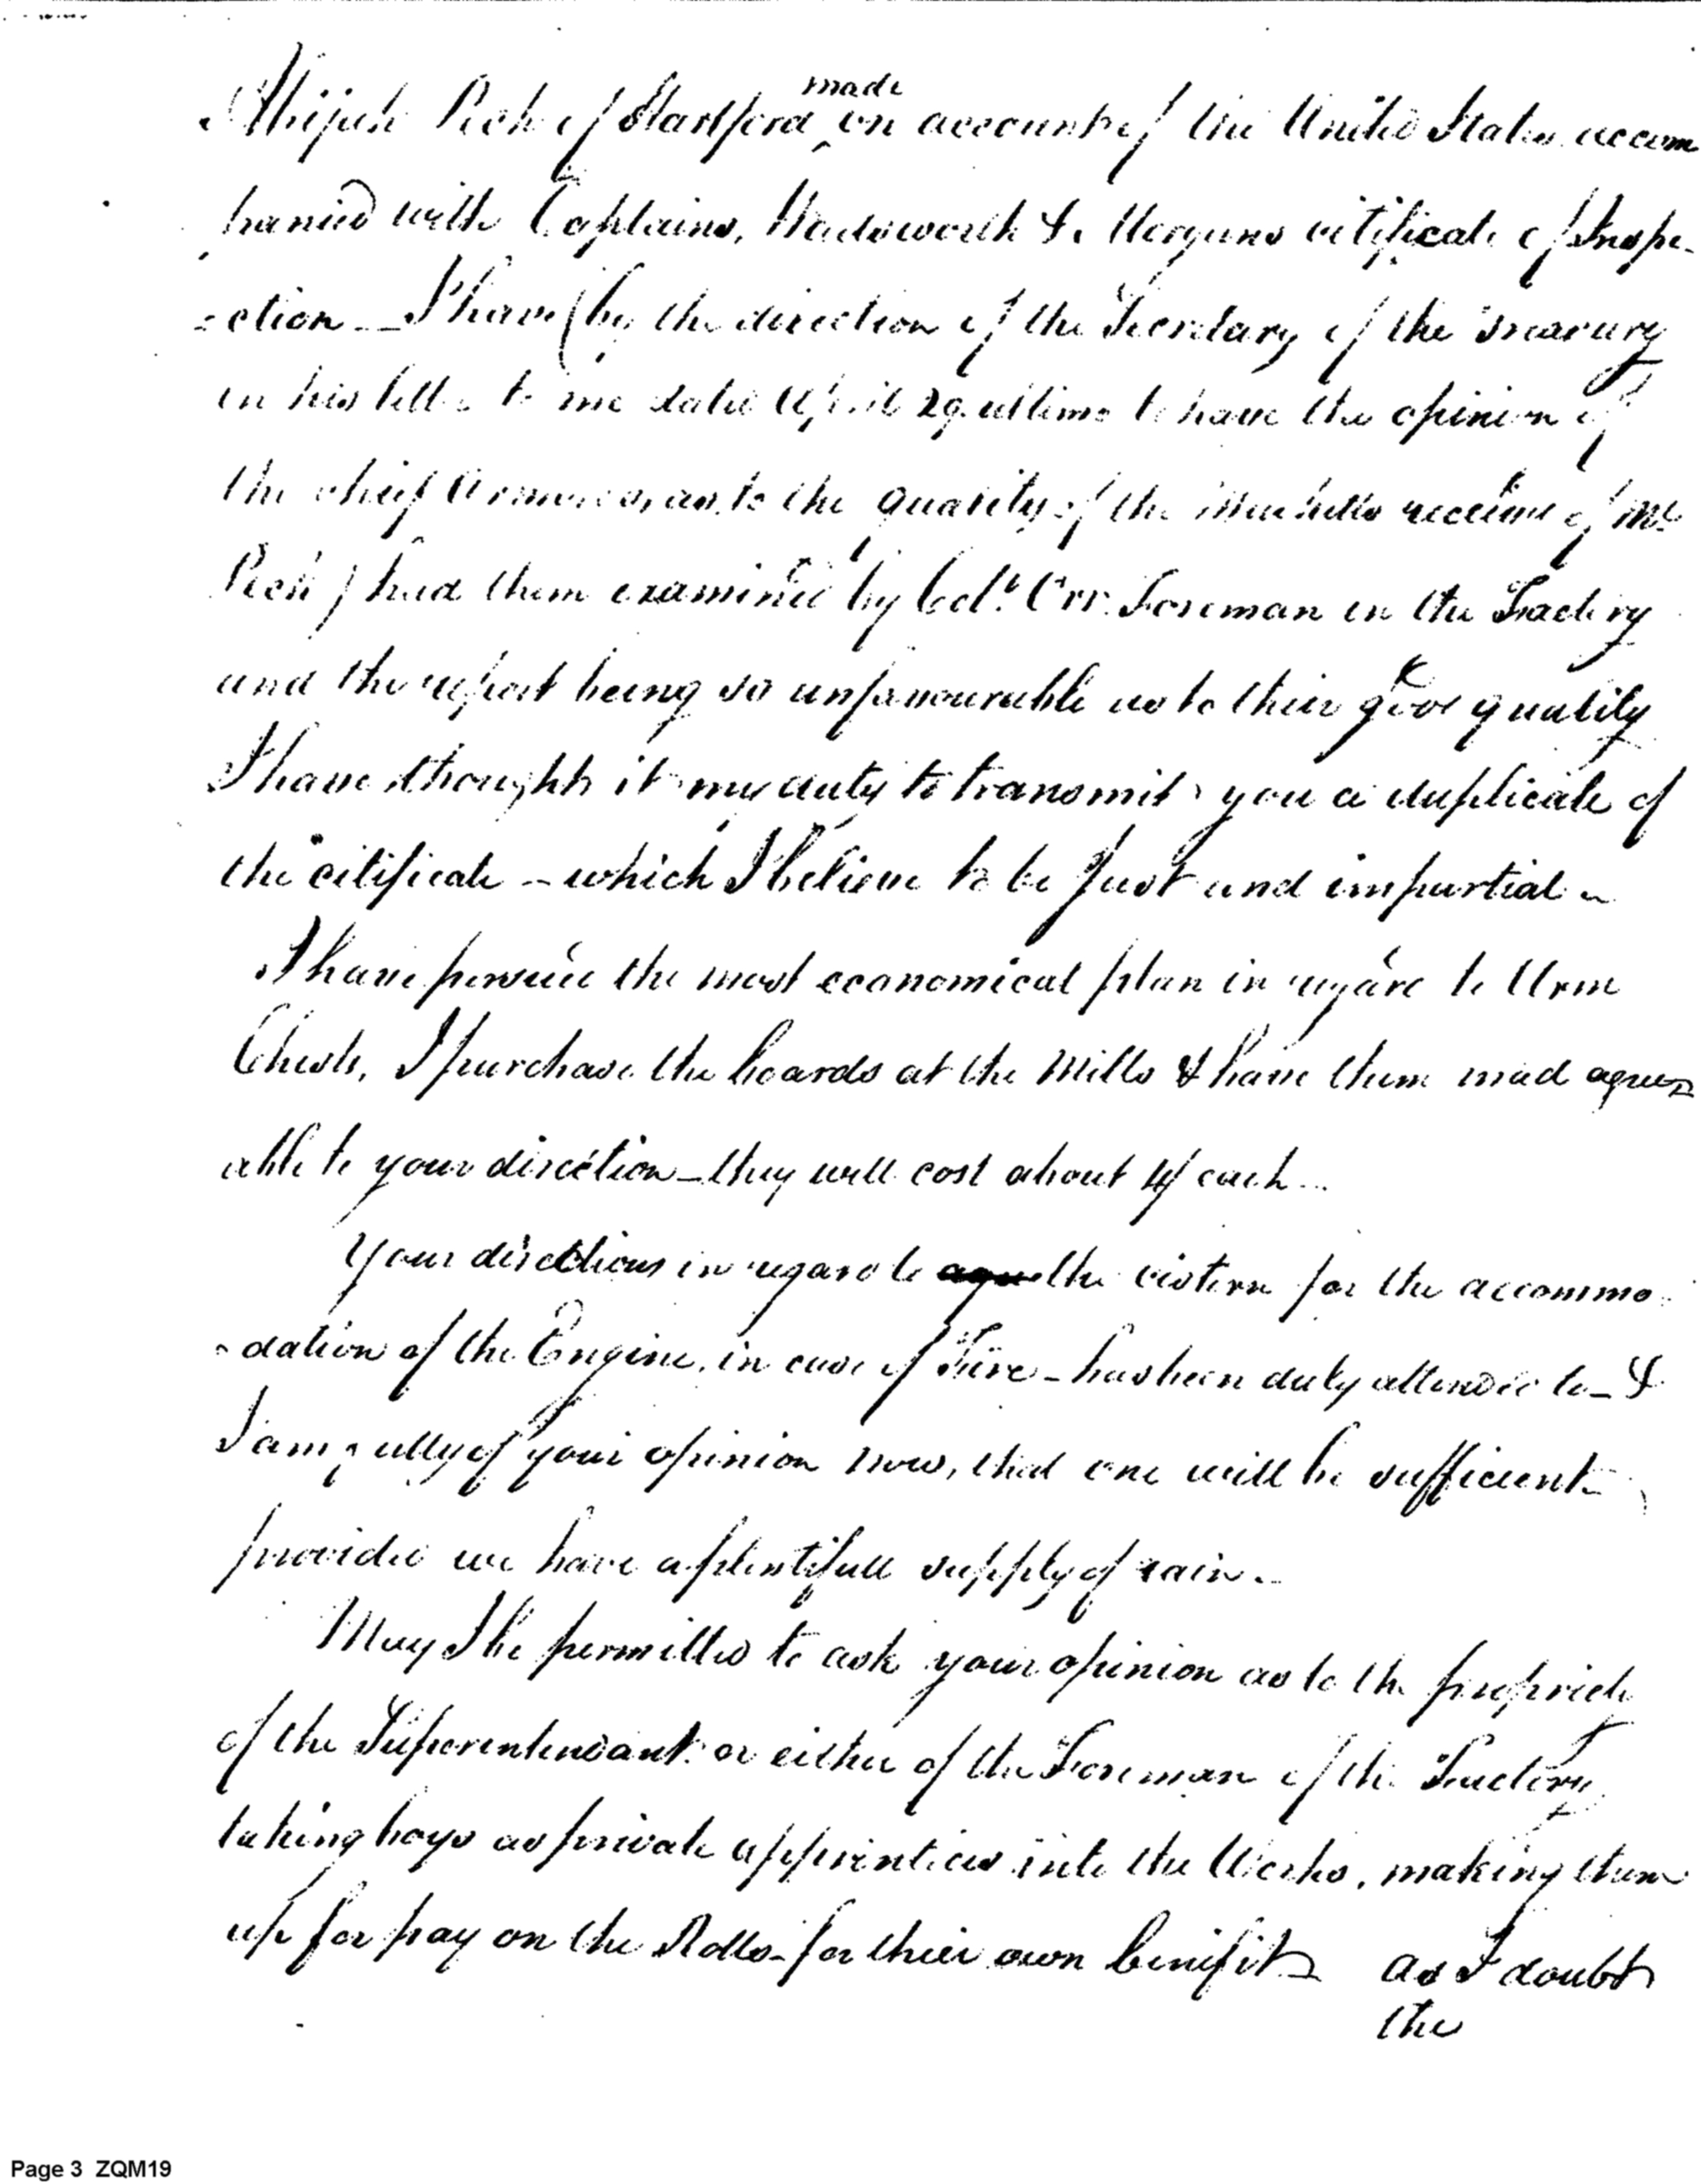 Abijah Peck of Hartford made on account of the United States accom
panied with Captains, Wadsworth & Morgans citificate of Inspe-
-ction - I have (by the direction of the Secretary of the Treasury
in his letter to me dated April 29 ultimo to have the opinion of
the chief Armourers, as to the quality of the muskets received of Mr
Peck) had them examined by Colt. Orr. Foreman in the Factory
and the report being so unfavourable as to their good quality
I have thought it my duty to transmit you a duplicate of
the citificate - which I believe to be Just and impartial -
I have persued the most economical plan in regard to Arm
Chests, I purchase the boards at the Mills & have them mad agree
able to your direction - they will cost about 4/ each -
Your directions in regard to the cistern for the accommo
-dation of the Engine, in case of Fire - has been duly attended to - &
I am fully of your opinion now, that one will be sufficient
provided we have a plentifull supply of rain -
May I be permitted to ask your opinion as to the propriety
of the Superintendant or either of the Foreman of the Factory
taking boys as private apprentices into the Works, making them
up for pay on the Rolls - for thier own benifit - as I doubt
the
Page 3 ZQM19